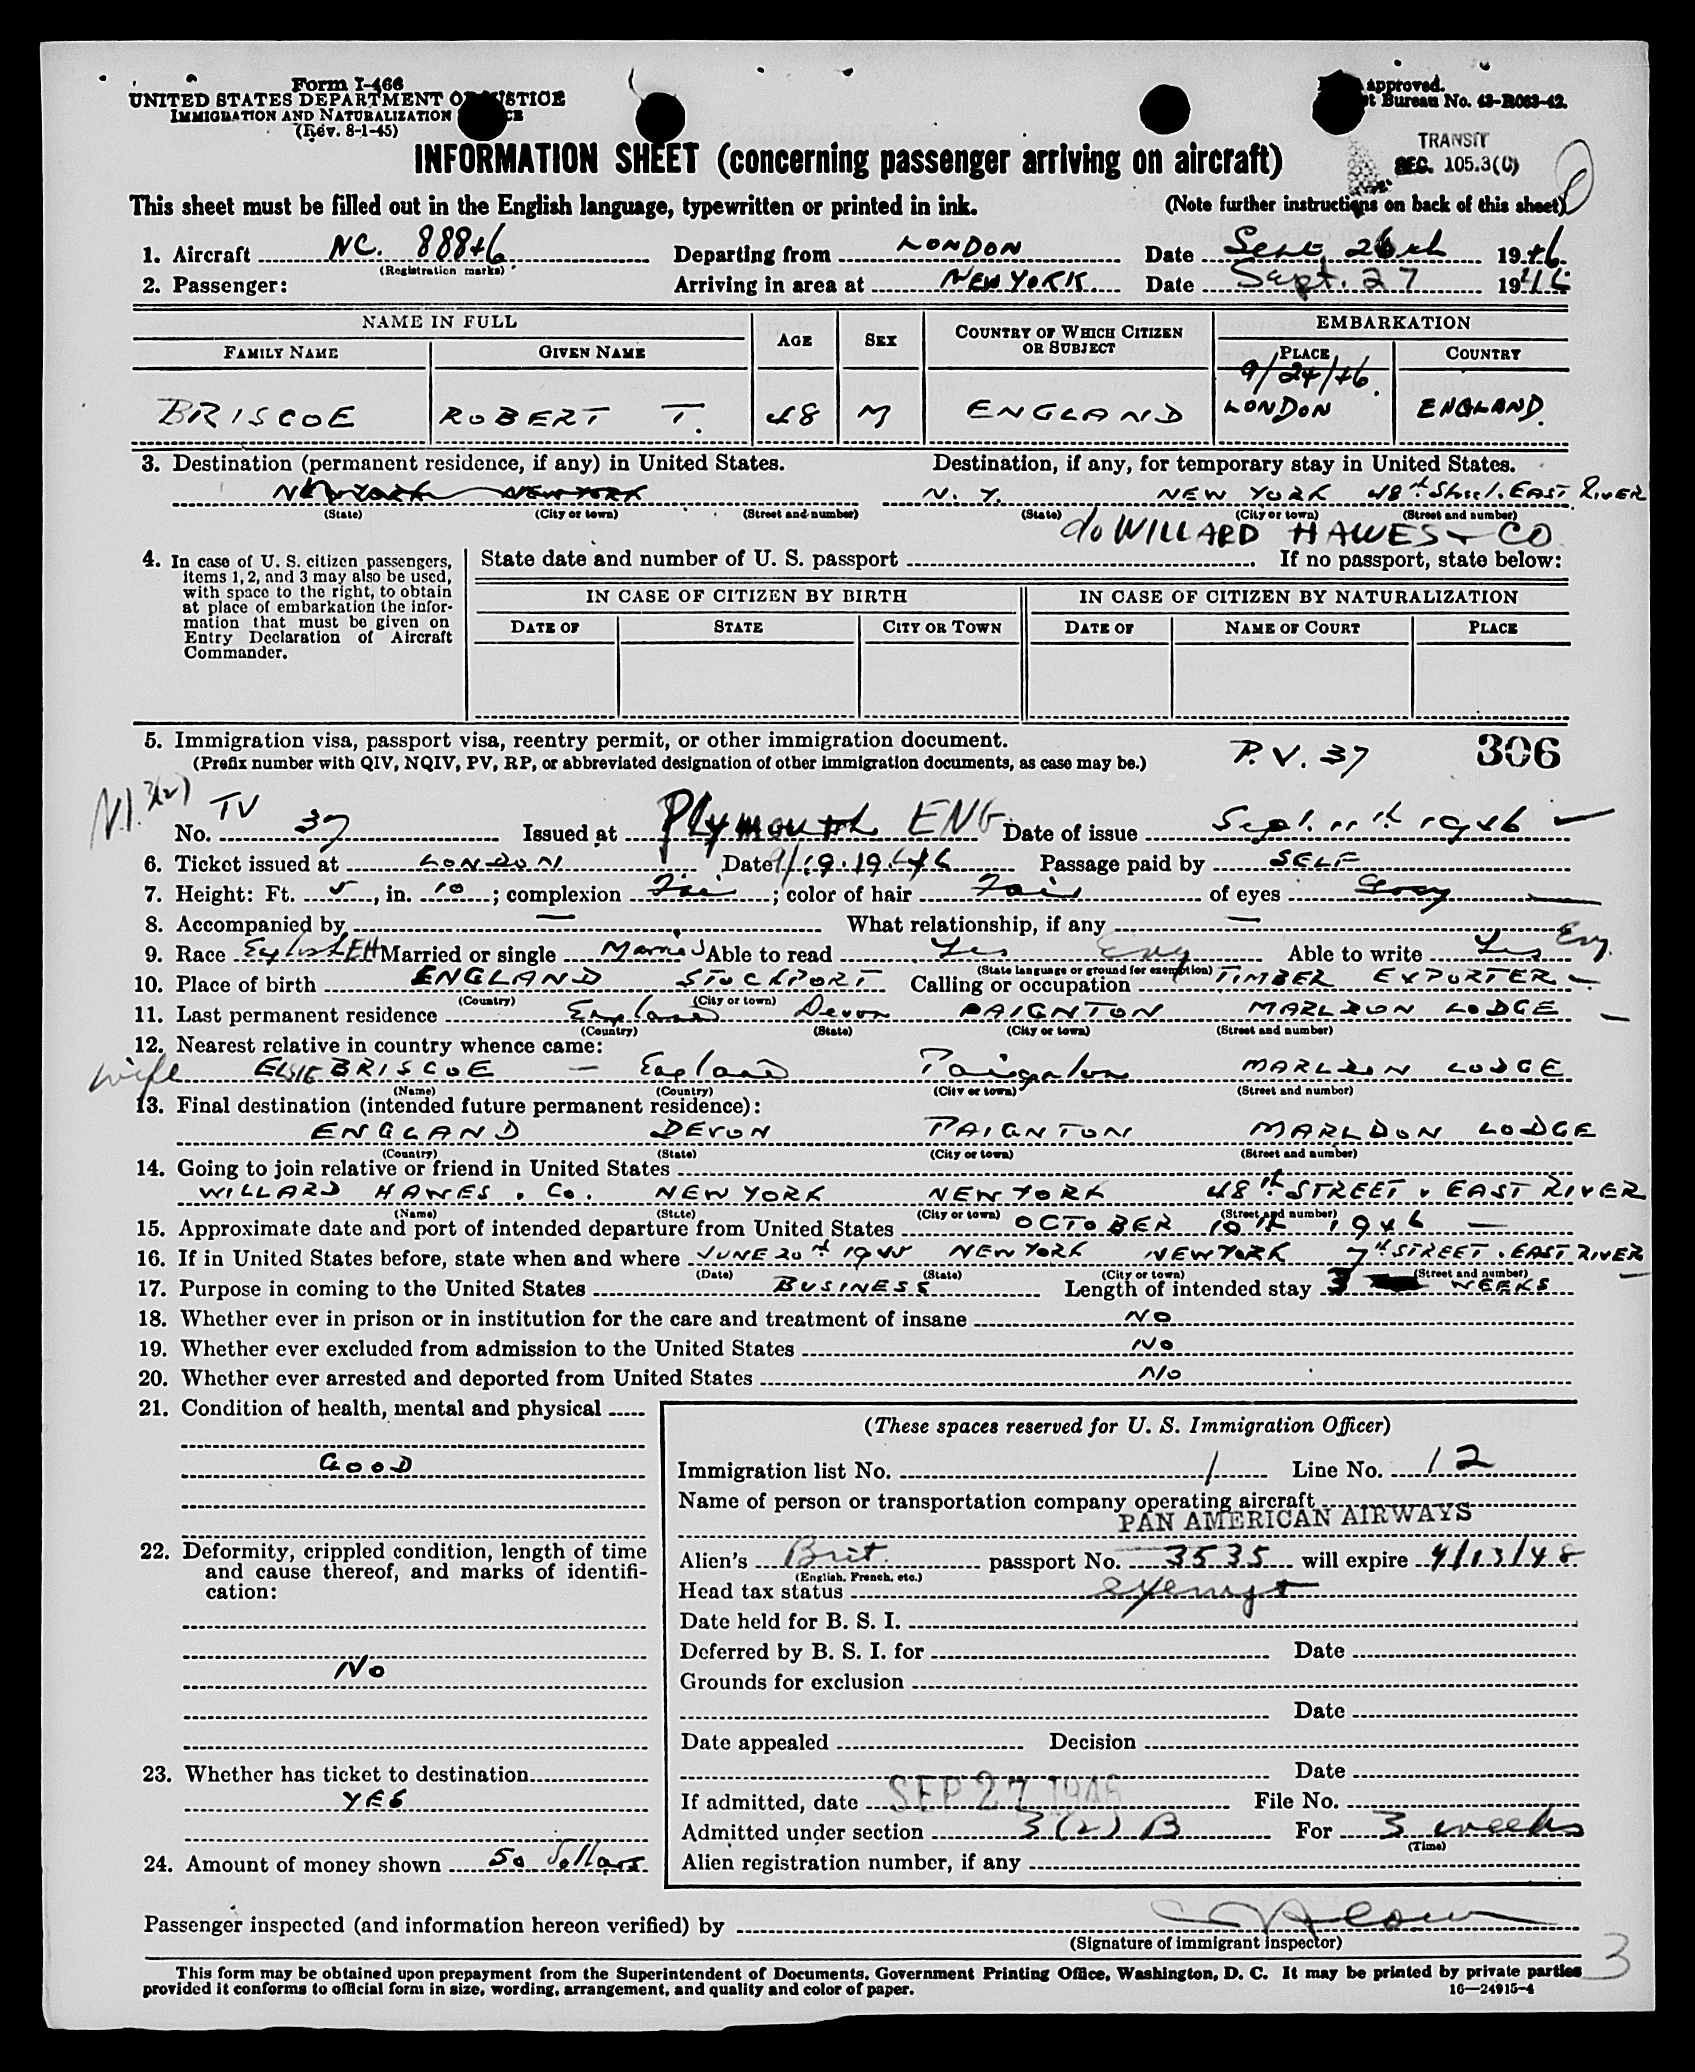 Form I-466
UNITED STATES DEPARTMENT OF JUSTICE
IMMIGRATION AND NATURALIZATION
(Rev. 8-1-45)
approved.
Bureau No. 43-R063-42.
TRANSIT
SEC. 105.3(C)
INFORMATION SHEET (concerning passenger arriving on aircraft)
This sheet must be filled out in the English language, typewritten or printed in ink. (Note further instructions on back of this sheet)
1. Aircraft NC. 88846 Departing from LONDON Date Sept 26th 1946.
(Registration marks)
2. Passenger: Arriving in area at NEW YORK. Date Sept. 27 1946
NAME IN FULL AGE SEX COUNTRY OF WHICH CITIZEN OR SUBJECT EMBARKATION
FAMILY NAME GIVEN NAME PLACE COUNTRY
9/24/46.
BRISCOE ROBERT T. 48 M ENGLAND LONDON ENGLAND.
3. Destination (permanent residence, if any) in United States. Destination, if any, for temporary stay in United States.
NEW YORK NEW YORK N. Y. NEW YORK 48th Street. EAST RIVER
(State) (City or town) (Street and number) (State) (City or town) (Street and number)
c/o WILLARD HAWES & CO
4. In case of U. S. citizen passengers, items 1, 2, and 3 may also be used, with space to the right, to obtain at place of embarkation the information that must be given on Entry Declaration of Aircraft Commander.
State date and number of U. S. passport . If no passport, state below:
IN CASE OF CITIZEN BY BIRTH IN CASE OF CITIZEN BY NATURALIZATION
DATE OF STATE CITY OR TOWN DATE OF NAME OF COURT PLACE
5. Immigration visa, passport visa, reentry permit, or other immigration document.
(Prefix number with QIV, NQIV, PV, RP, or abbreviated designation of other immigration documents, as case may be.)
P.V. 37 306
N.I. 3(2) TV
No. 37 Issued at Plymouth ENG. Date of issue Sept. 11th 1946
6. Ticket issued at LONDON Date 9/19.1946 Passage paid by SELF
7. Height: Ft. 5, in. 10; complexion Fair; color of hair Fair of eyes Grey
8. Accompanied by — What relationship, if any —
9. Race English EH Married or single Married Able to read Yes Eng Able to write Yes Eng.
(State language or ground for exemption)
10. Place of birth ENGLAND STOCKPORT Calling or occupation TIMBER EXPORTER
(Country) (City or town)
11. Last permanent residence England Devon PAIGNTON MARLDON LODGE
(Country) (State) (City or town) (Street and number)
12. Nearest relative in country whence came:
wife ELSIE BRISCOE — England Paignton MARLDON LODGE
(Name) (Country) (City or town) (Street and number)
13. Final destination (intended future permanent residence):
ENGLAND DEVON PAIGNTON MARLDON LODGE
(Country) (State) (City or town) (Street and number)
14. Going to join relative or friend in United States
WILLARD HAWES. Co. NEW YORK NEW YORK 48th STREET. EAST RIVER
(Name) (State) (City or town) (Street and number)
15. Approximate date and port of intended departure from United States OCTOBER 10th 1946 —
16. If in United States before, state when and where JUNE 20th NEW YORK NEW YORK 7th STREET. EAST RIVER
(Date) (State) (City or town) (Street and number)
17. Purpose in coming to the United States BUSINESS Length of intended stay 3 WEEKS
18. Whether ever in prison or in institution for the care and treatment of insane NO
19. Whether ever excluded from admission to the United States NO
20. Whether ever arrested and deported from United States NO
21. Condition of health, mental and physical
GOOD
22. Deformity, crippled condition, length of time and cause thereof, and marks of identification:
NO
23. Whether has ticket to destination
YES
24. Amount of money shown 50 Dollars
(These spaces reserved for U. S. Immigration Officer)
Immigration list No. 1 Line No. 12
Name of person or transportation company operating aircraft
PAN AMERICAN AIRWAYS
Alien's Brit. passport No. 3535 will expire 4/13/48
(English, French, etc.)
Head tax status exempt
Date held for B. S. I.
Deferred by B. S. I. for Date
Grounds for exclusion
Date
Date appealed Decision
Date
If admitted, date SEP 27 1946 File No.
Admitted under section 3(2) B For 3 weeks
(Time)
Alien registration number, if any
Passenger inspected (and information hereon verified) by
(Signature of immigrant inspector)
3
This form may be obtained upon prepayment from the Superintendent of Documents, Government Printing Office, Washington, D. C. It may be printed by private parties
provided it conforms to official form in size, wording, arrangement, and quality and color of paper. 16—24915-4